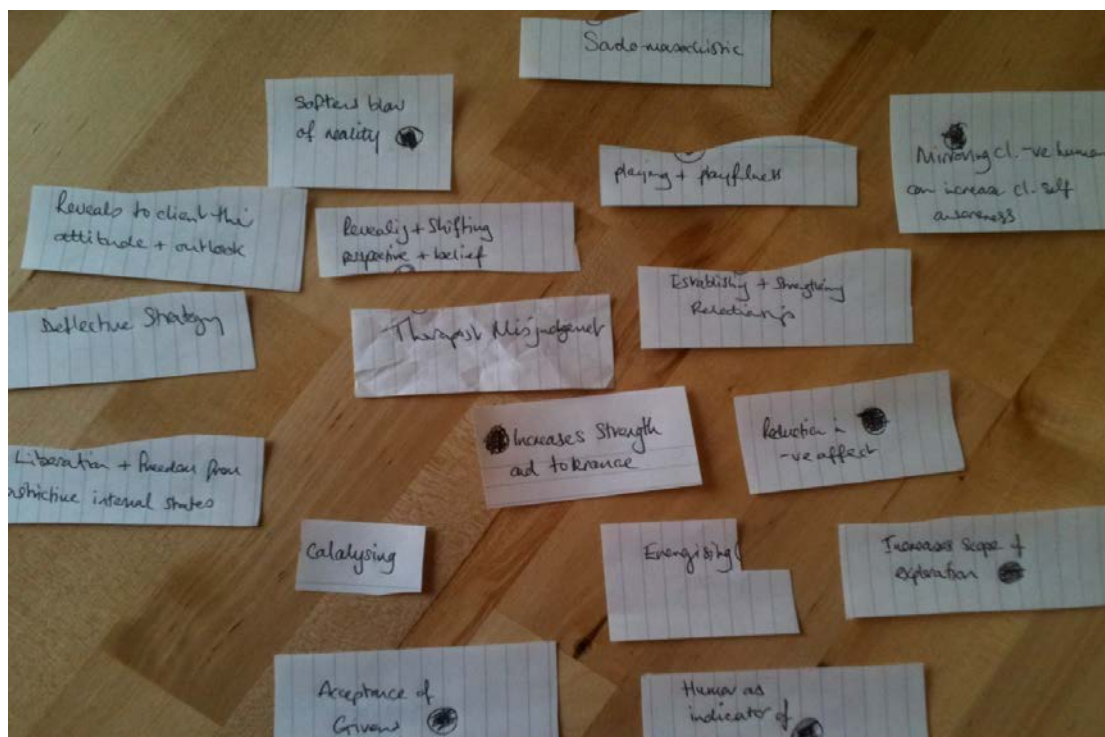 Sado-masochistic
Softens blow
of reality
playing + playfulness
Mirroring cl. -ve humo
can increase cl. self
awareness
Reveals to client thi
attitude + outlook
Revealig + Shifting
perspective + belief
Establishig + Strengthing
Relationship
Deflective Strategy
Therapist Misjudgemet
Increases Strength
ad tolerance
Reduction in
-ve affect
Liberation + Freedom from
strictive internal states
Catalysing
Energising
Increases scope of
exploration
Acceptance of
Givens
Humor as
indicator of